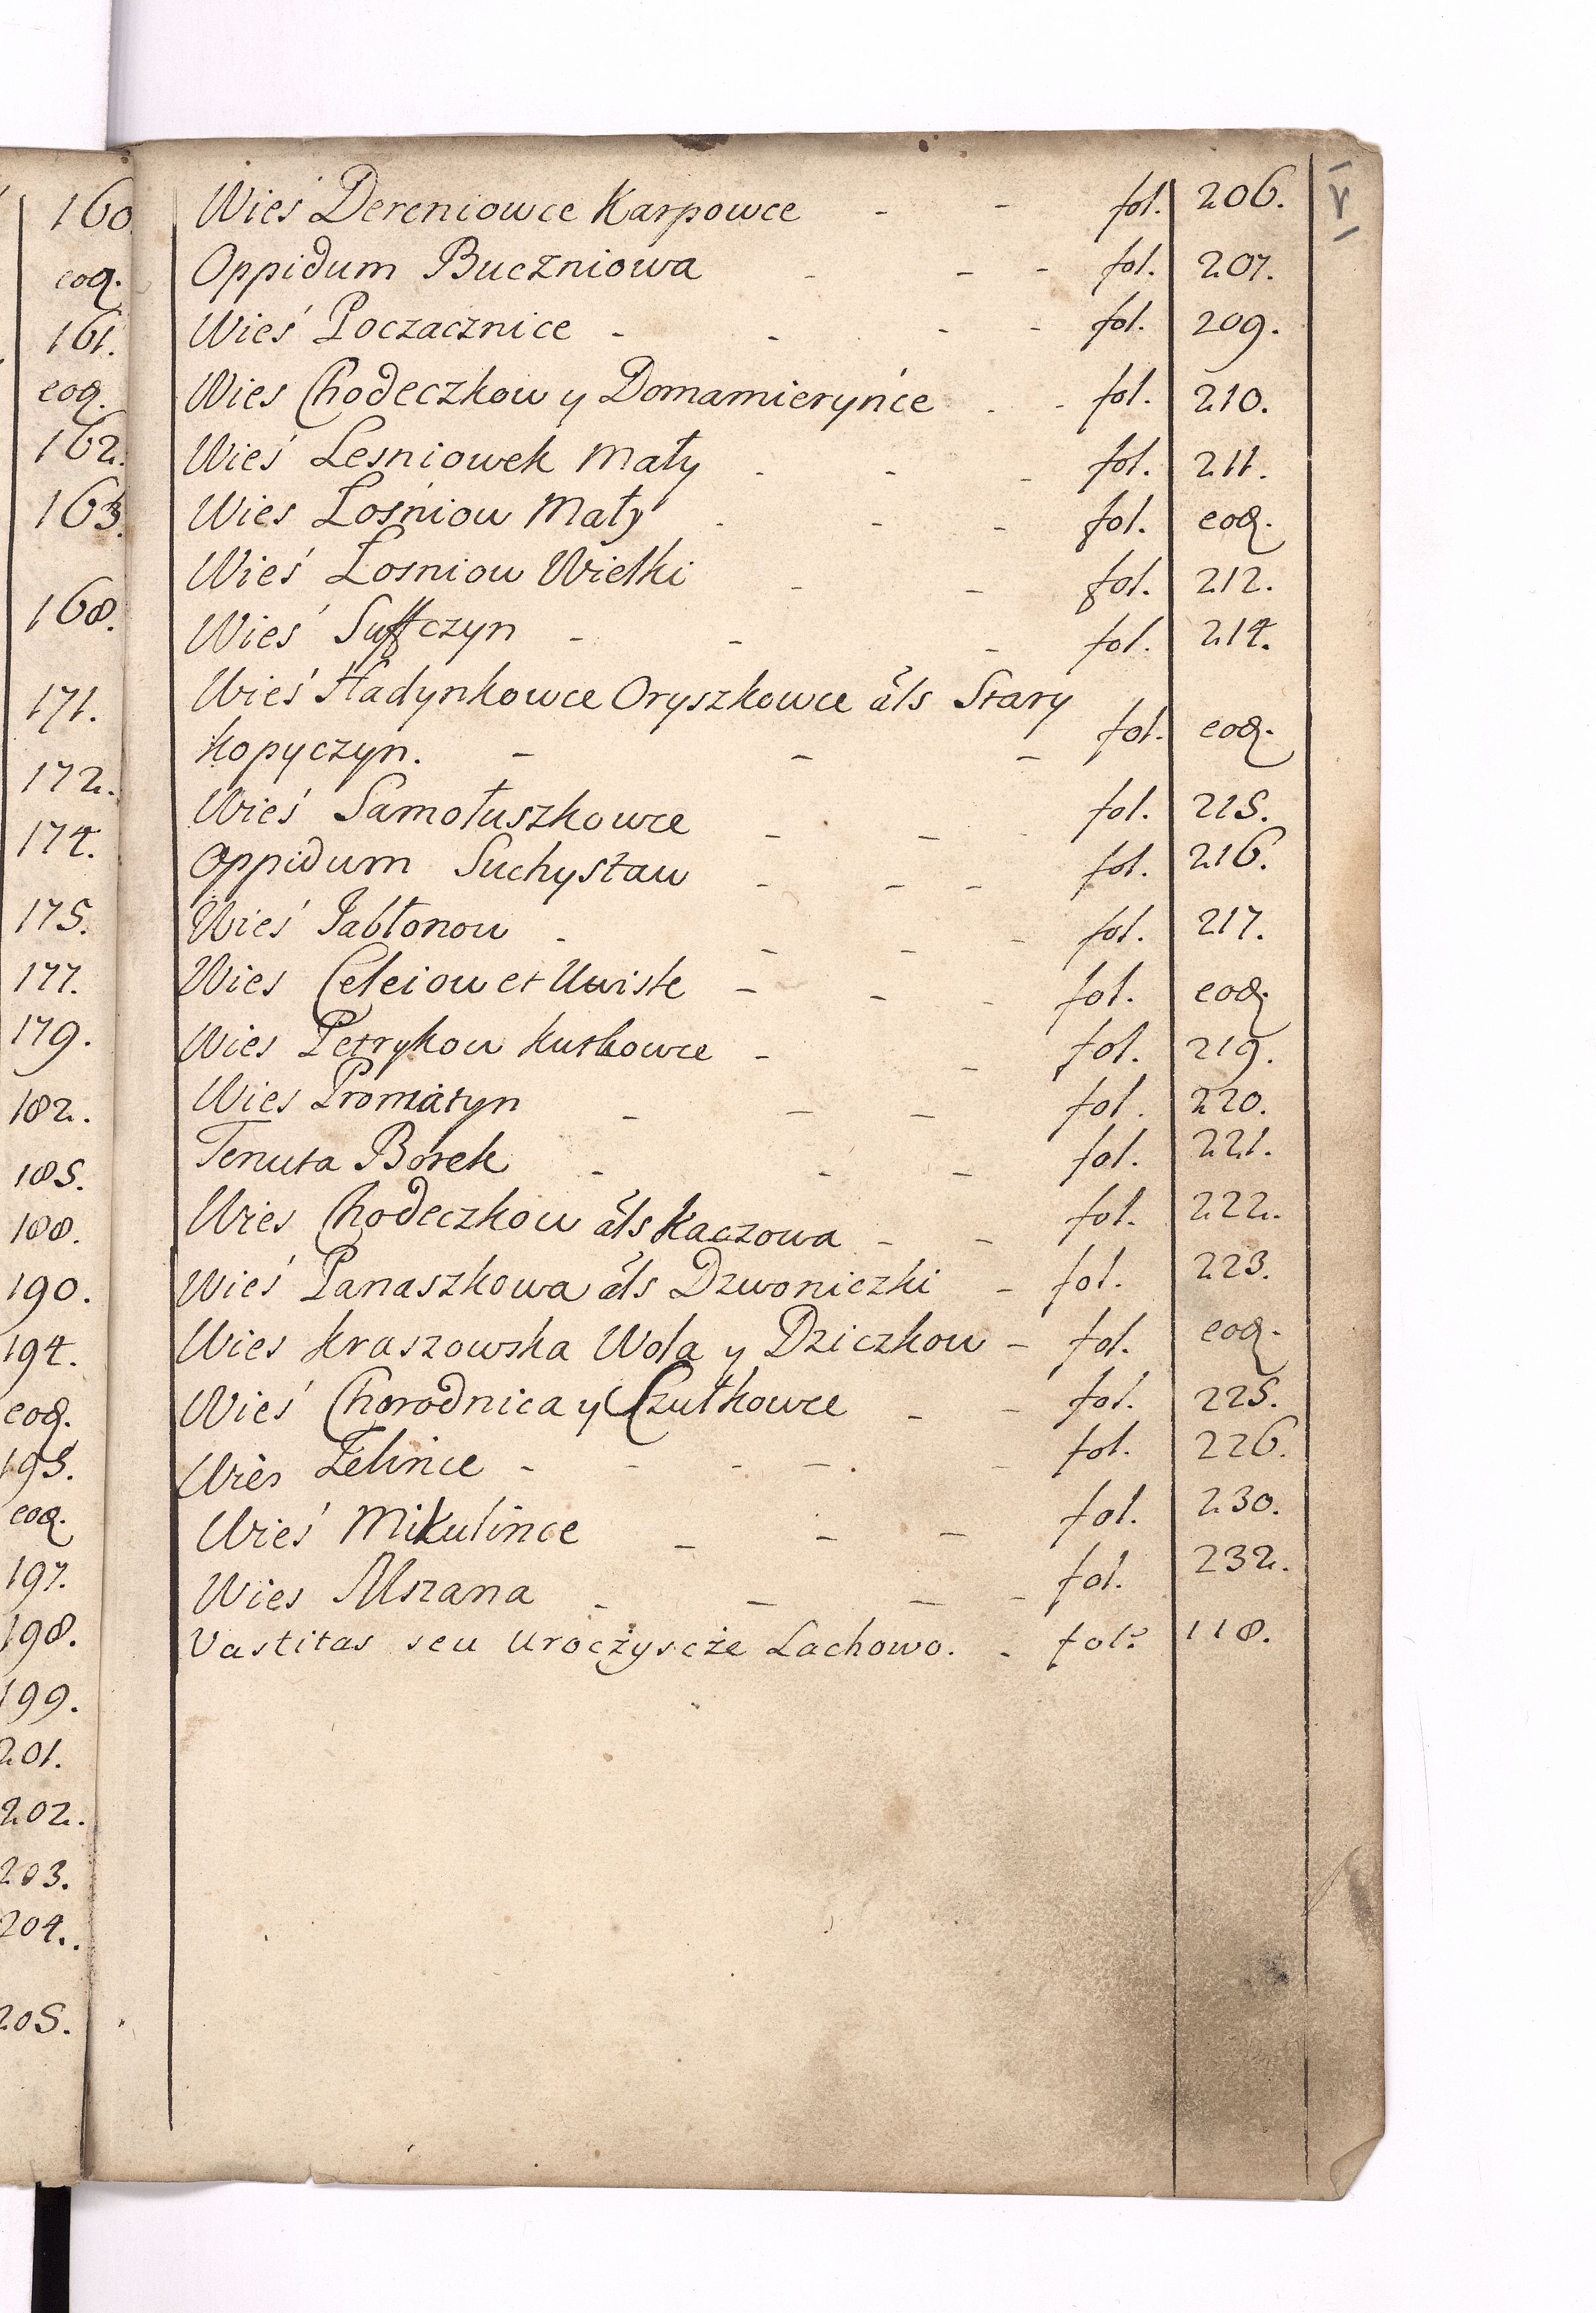 160.
eoq.
161.
eoq.
162.
163.
168.
171.
172.
174.
175.
177.
179.
182.
185.
188.
190.
194.
eoq.
195.
eoq.
197.
198.
199.
201.
202.
203.
204.
205.
V
Wieś Dereniowce Karpowce - - fol. 206.
Oppidum Buczniowa - - - fol. 207.
Wieś Poczacznice - - - - fol. 209.
Wies Chodeczkow y Domamieryńce - - fol. 210.
Wieś Lesniowek Mały - - - fol. 211.
Wies Łosńiow Mały - - - fol. eoq.
Wieś Łosniow Wielki - - fol. 212.
Wieś Suffczyn - - - fol. 214.
Wieś Hadynkowce Oryszkowce als Stary
Kopyczyn. - - - fol. eoq.
Wieś Samołuszkowce - - fol. 215.
Oppidum Suchystaw - - - fol. 216.
Wieś Jabłonow - - - - fol. 217.
Wies Celeiow et Uwisłe - - - fol. eoq.
Wies Petrykow Kutkowce - - fol. 219.
Wies Promatyn - - - fol. 220.
Tenuta Borek - - - fol. 221.
Wies Chodeczkow als Kaczowa - - fol. 222.
Wieś Panaszkowa als Dzwoniczki - fol. 223.
Wies Kraszowska Wola y Dziczkow - fol. eoq.
Wieś Chorodnica y Czułkowce - - fol. 225.
Wies Żelince - - - - - fol. 226.
Wieś Mikulince - - - fol. 230.
Wies Mszana - - - - fol. 232.
Vastitas seu Uroczyscże Lachowo. - fol: 118.